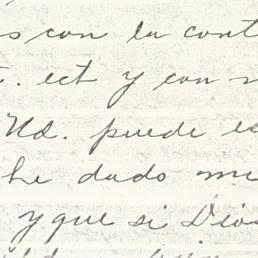 s con la cont
t. ect y con
Ud. puede es
he dado mu
y que si Dios